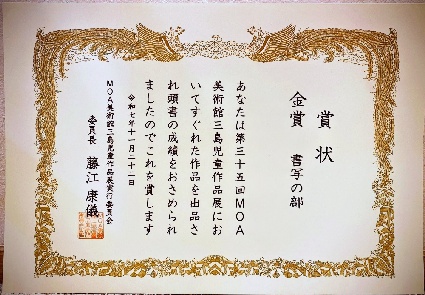 賞状
金賞 書写の部
あなたは第三十五回MOA
美術館三島児童作品展にお
いてすぐれた作品を出品さ
れ頭書の成績をおさめられ
ましたのでこれを賞します
令和七年十一月二十一日
MOA美術館三島児童作品展実行委員会
委員長 藤江康儀